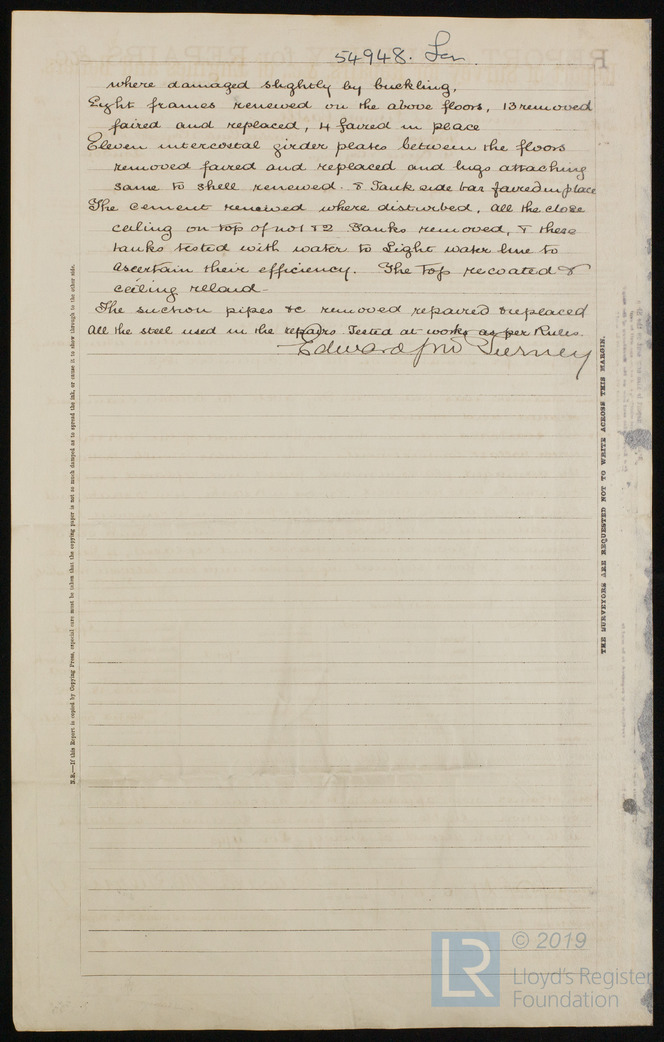 54948. Lon.
where damaged slightly by buckling.
Eight frames renewed on the above floors, 13 removed
faired and replaced, 4 faired in place
Eleven intercostal girder plates between the floors
removed faired and replaced and lugs attaching
same to shell renewed. & Tank side bar faired in place
The cement renewed where disturbed, all the close
ceiling on top of No 1 & 2 Tanks removed, & these
tanks tested with water to Light water line to
ascertain their efficiency. The Top recoated &
ceiling relaid -
The suction pipes &c removed repaired & replaced
All the steel used in the repairs Tested at works as per Rules.
Edward Tierney
N.B.—If this Report is copied by Copying Press, especial care must be taken that the copying paper is not so much damped as to spread the ink, or cause it to show through to the other side.
THE SURVEYORS ARE REQUESTED NOT TO WRITE ACROSS THIS MARGIN.
LR
© 2019
Lloyd's Register
Foundation